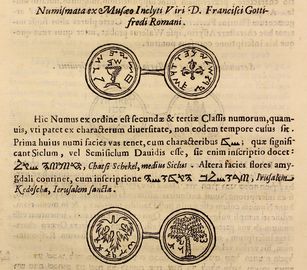 Numismata ex Musæo Inclyti Viri D. Francisci Gotti-
fredi Romani.
Hic Numus ex ordine est secundæ & tertiæ Classis numorum, quam-
uis, vti patet ex characterum diuersitate, non eodem tempore cusus sit.
Prima huius numi facies vas tenet, cum characteribus quæ signifi-
cant Siclum, vel Semisiclum Dauidis esse, sic enim inscriptio docet:
Chatsi Schekel, medius Siclus. Altera facies flores amy-
gdali continet, cum inscriptione Irusalem
Kedoscha, Ierusalem sancta.